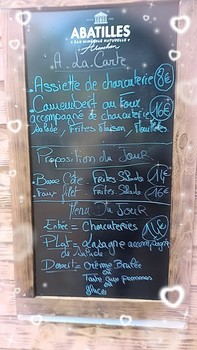 ABATILLES
EAU MINÉRALE NATURELLE
Arcachon
A La Carte
Assiette de charcuterie 8€
Camembert au Four 16€
accompagné de charcuterie
Salade, Frites Maison,
Proposition du Jour
Bavece Côte Frites Salade 11€
Faux filet Frites Salade 16€
Menu Du Jour
Entrée = Charcuteries
Plat = lasagne accompagnée
de salade
Dessert = Crème Brulée
ou
Tarte aux pommes
ou
glaces